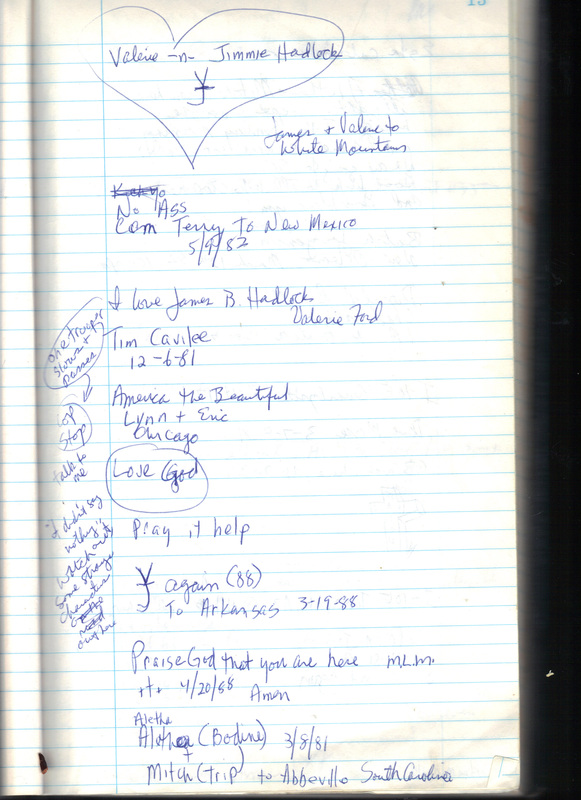 15
Valerie -n- Jimmie Hadlock
James + Valerie to
White Mountains
No Ass
Com Terry To New Mexico
5/9/82
I love James B. Hadlock
Valerie Ford
Tim Cavilee
12-6-81
America the Beautiful
Lynn + Eric
Chicago
Love God
Pray it help
again (88)
To Arkansas 3-19-88
Praise God that you are here M.L.M.
4/20/88 Amen
Aletha
(Bodine) 3/8/81
+
Mitch (Trip) to Abbeville South Carolina
one trooper
slows +
passes
Stop
talk to
me
I didn't say
nothing
Watch out
Some strange
characters
out here